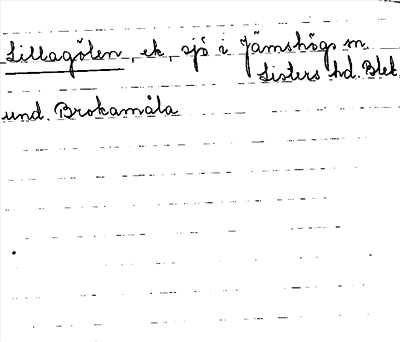 Lillagölen, ek, sjö i Jämshögs sn.
Listers hd. Blek.
und. Brokamåla